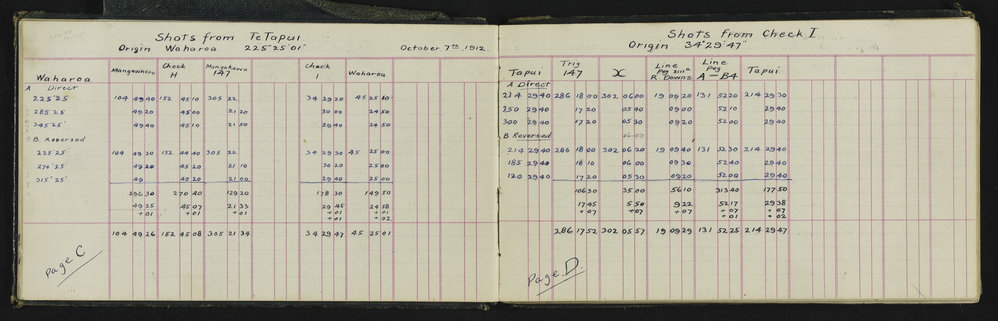 Shots from Te Tapui
Origin Waharoa 225°25'01" October 7th 1912
Waharoa Mangawhero Check H Mangakawa 147 Check I Waharoa
A Direct
225°25' 104 49 40 152 45 10 305 22 34 29 20 45 25 10
285 25' 49 20 45 00 21 20 30 00 24 50
345 25' 49 40 45 10 21 50 29 40 24 50
B. Reversed
225°25' 104 49 30 152 44 40 305 22 34 29 30 45 25 00
270°25' 49 20 45 20 21 10 30 20 25 00
315°25' 49 45 20 21 00 29 40 25 00
296 30 270 40 129 20 178 30 149 50
49 25 45 07 21 33 29 45 24 58
+01 +01 +01 +01 +01
+01 +02
104 49 26 152 45 08 305 21 34 34 29 47 45 25 01
Page C
Shots from Check I
Origin 34°29'47"
Tapui Trig 147 X Line Peg R Downs Line Peg A-B4 Tapui
A Direct
214 29 40 286 18 00 302 06 00 19 09 20 131 52 20 214 29 30
250 29 40 17 20 05 40 09 00 52 10 29 40
300 29 40 17 20 05 30 09 20 52 00 29 40
B Reversed
214 29 40 286 18 00 302 06 20 19 09 40 131 52 30 214 29 40
185 29 40 18 10 06 00 09 30 52 40 29 40
120 29 40 17 20 05 30 09 20 52 00 29 40
106 30 35 00 56 10 313 40 177 50
17 45 5 50 9 22 52 17 29 38
+07 +07 +07 +07 +07
+01 +02
286 17 52 302 05 57 19 09 29 131 52 25 214 29 47
Page D.